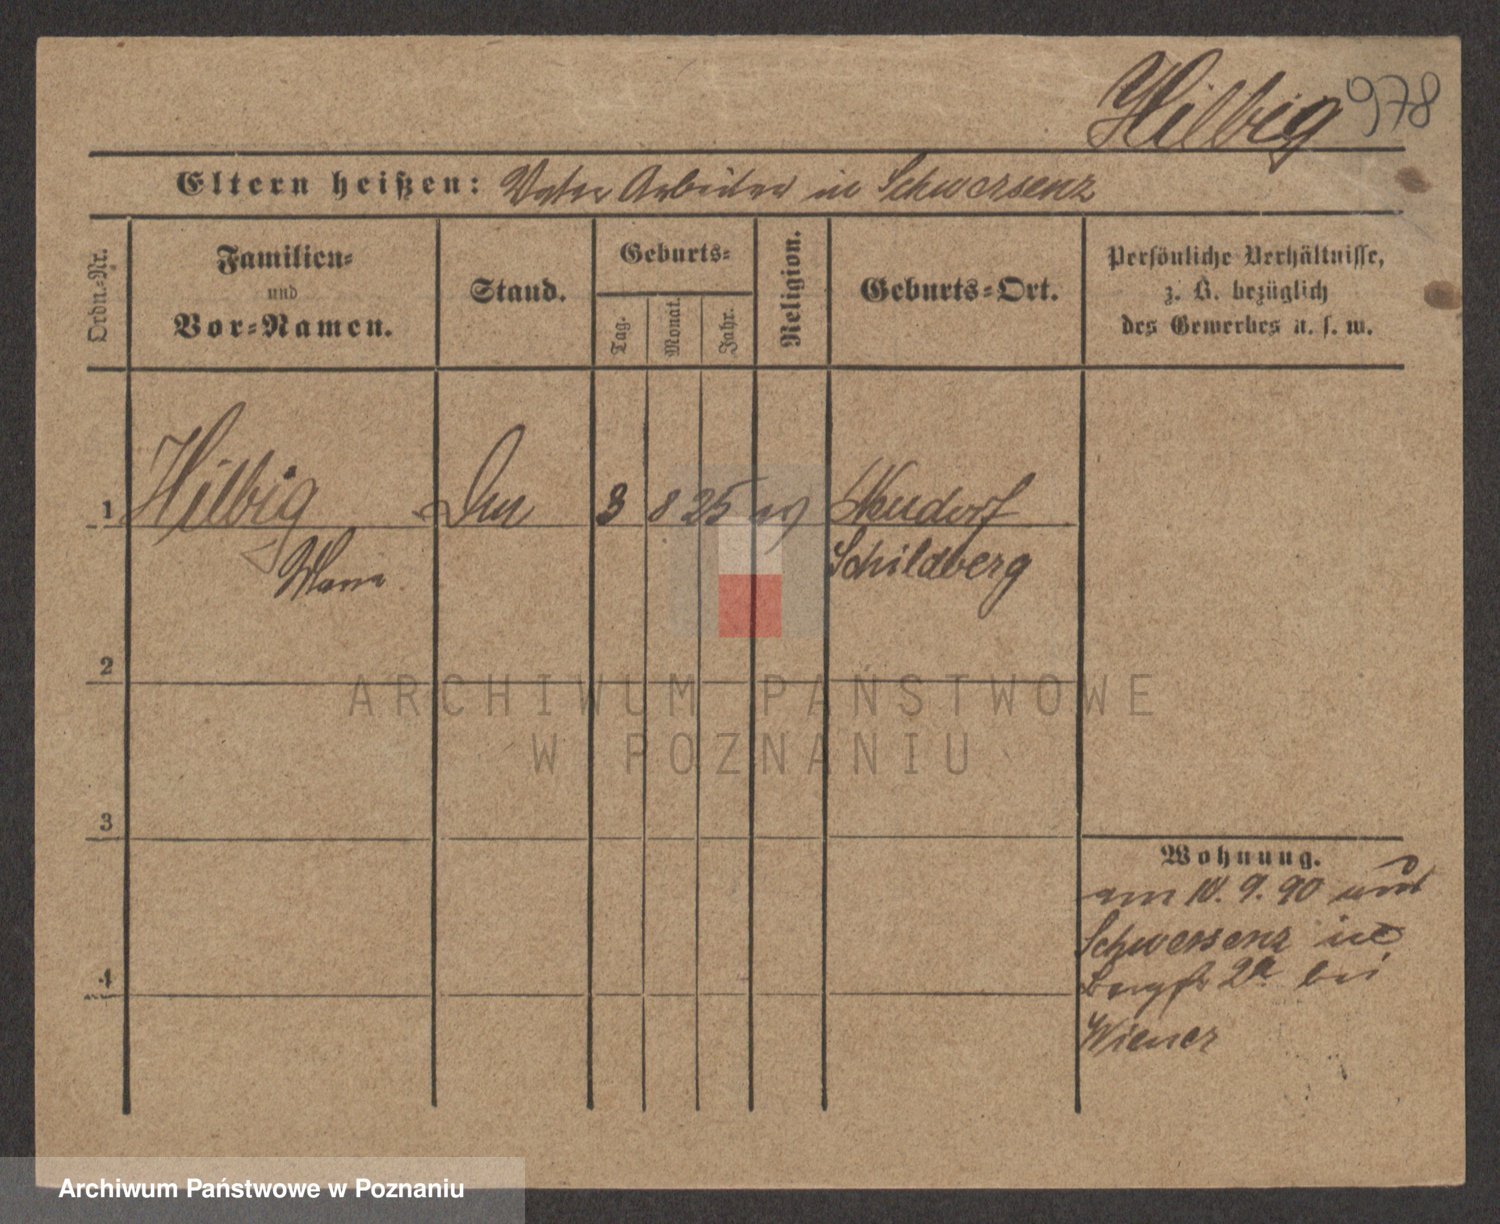 Hilbig 978
Eltern heißen: Vater Arbeiter in Schwersenz
Ordn.-Nr.
Familien-
und
Vor-Namen.
Stand.
Geburts-
Tag.
Monat.
Jahr.
Religion.
Geburts-Ort.
Persönliche Verhältnisse,
z. B. bezüglich
des Gewerbes u. s. w.
1 Hilbig 3 8 25 Neudorf
Schildberg
2
3
4
Wohnung.
am 10. 9. 90 aus
Schwersenz in
Bergstr 2a bei
Wiener
ARCHIWUM PAŃSTWOWE
W POZNANIU
Archiwum Państwowe w Poznaniu